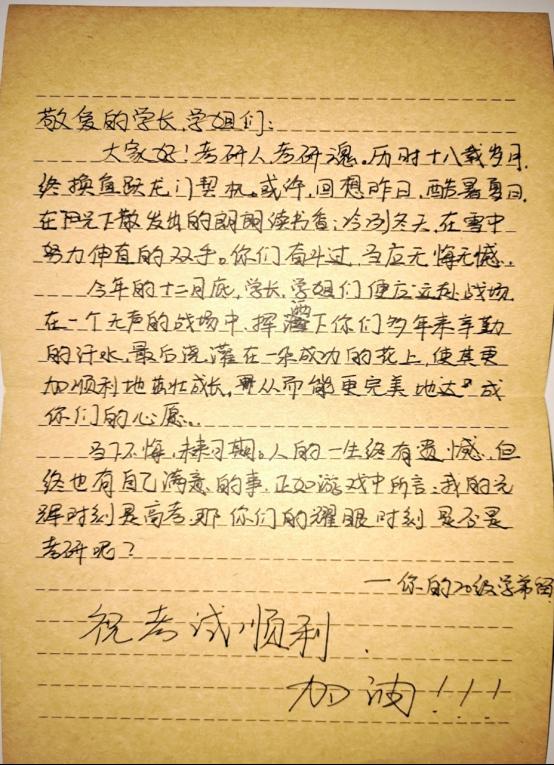 敬爱的学长,学姐们:
大家好!考研人考研魂。历时十八载岁月,
终换鱼跃龙门契机。或许,回想昨日,酷暑夏日,
在阳光下散发出的朗朗读书香;冷冽冬天,在雪中
努力伸直的双手。你们奋斗过,当应无悔无憾。
今年的十二月底,学长,学姐们便应远赴战场,
在一个无声的战场中,挥洒下你们多年来辛勤
的汗水,最后浇灌在一朵成功的花上,使其更
加顺利地茁壮成长,从而能更完美地达成
你们的心愿。
当下不悔,未来可期。人的一生终有遗憾,但
终也有自己满意的事,正如游戏中所言:我的光
辉时刻是高考,那你们的耀眼时刻是不是
考研呢?
—你的20级学弟留
祝考试顺利.
加油!!!